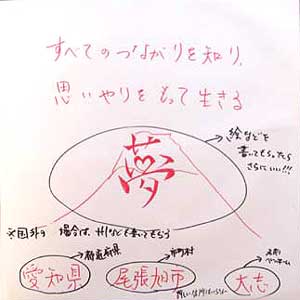 すべてのつながりを知り、
思いやりをもって生きる
夢
絵などを
書いてもらったら
さらにいい!!!
※国外の場合は、州などを書いてもらう
都道府県
市町村
愛知県
尾張旭市
大志